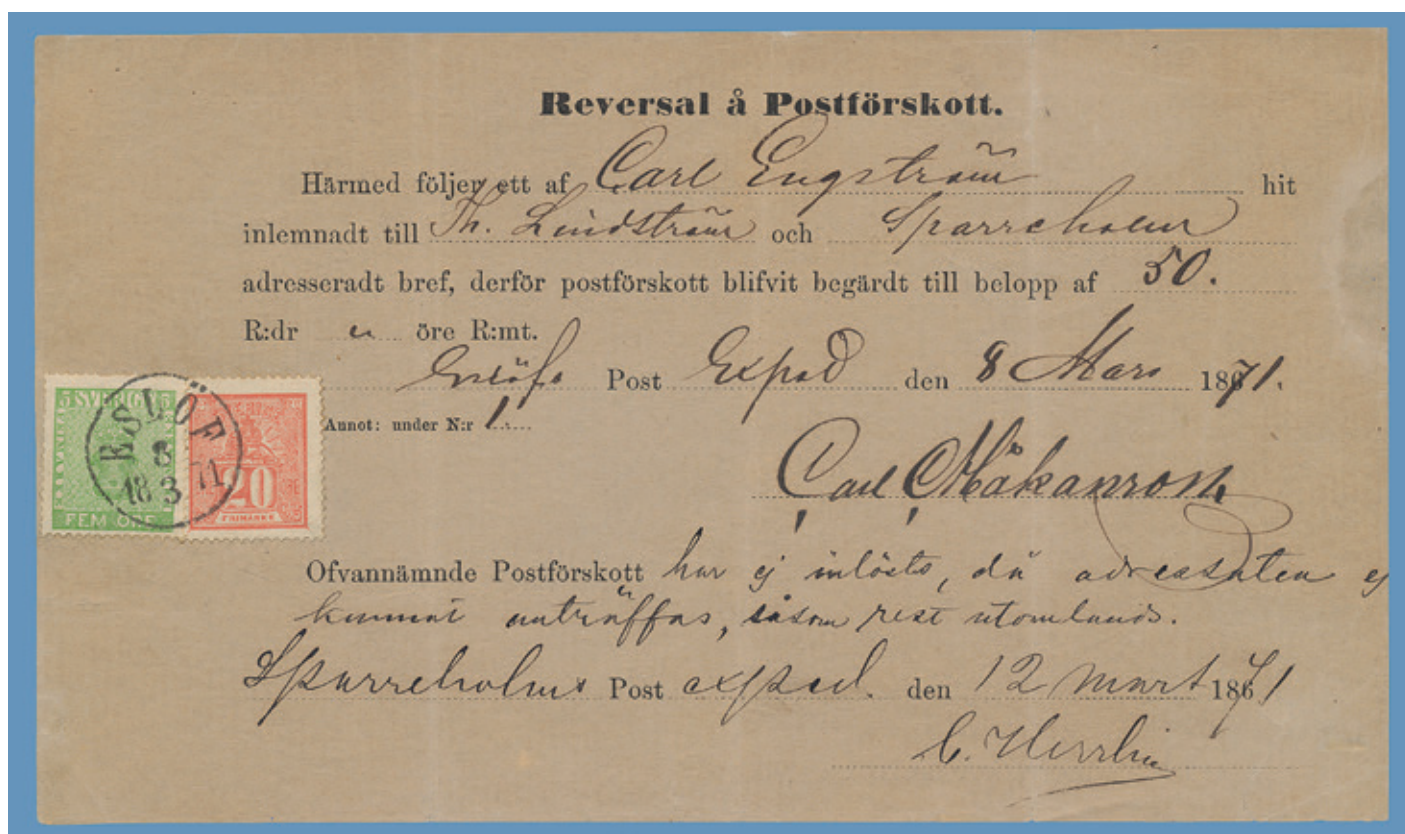 Reversal å Postförskott.
Härmed följer ett af Carl Engström hit
inlemnadt till Th. Lindström och Sparreholm
adresseradt bref, derför postförskott blifvit begärdt till belopp af 50.
R:dr öre R:mt.
Eslöfs Post Exped den 8 Mars 1871.
Annot: under N:r 1.
5 SVERIGE 5
FEM ÖRE
20
FRIMÄRKE
ESLÖF
8
18 3 71
Carl
Ofvannämnde Postförskott har ej inlösts, då adressaten ej
kunnat anträffas, såsom rest utomlands.
Sparreholms Post exped. den 12 mart 1871
C. Herrlin